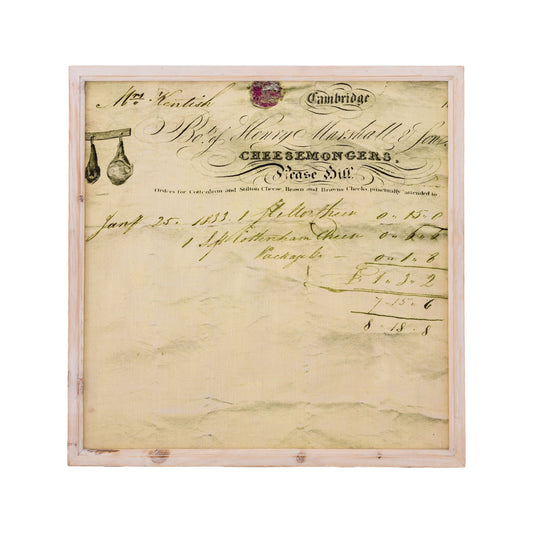 Mrs Kentish Cambridge 1
Bot. of Henry Marshall & Sons
CHEESEMONGERS,
Pease Hill.
Orders for Cottenham and Stilton Cheese, Brawn and Brawns Cheeks, punctually attended to
Jany 25. 1833. 1 Stilton Cheese 0 " 15 " 0
1 Sgl Cottenham Cheese 0 "
Package &c — 0 " 1 " 8
£ 1 " 3 " 2
7 " 15 " 6
8 " 18 " 8